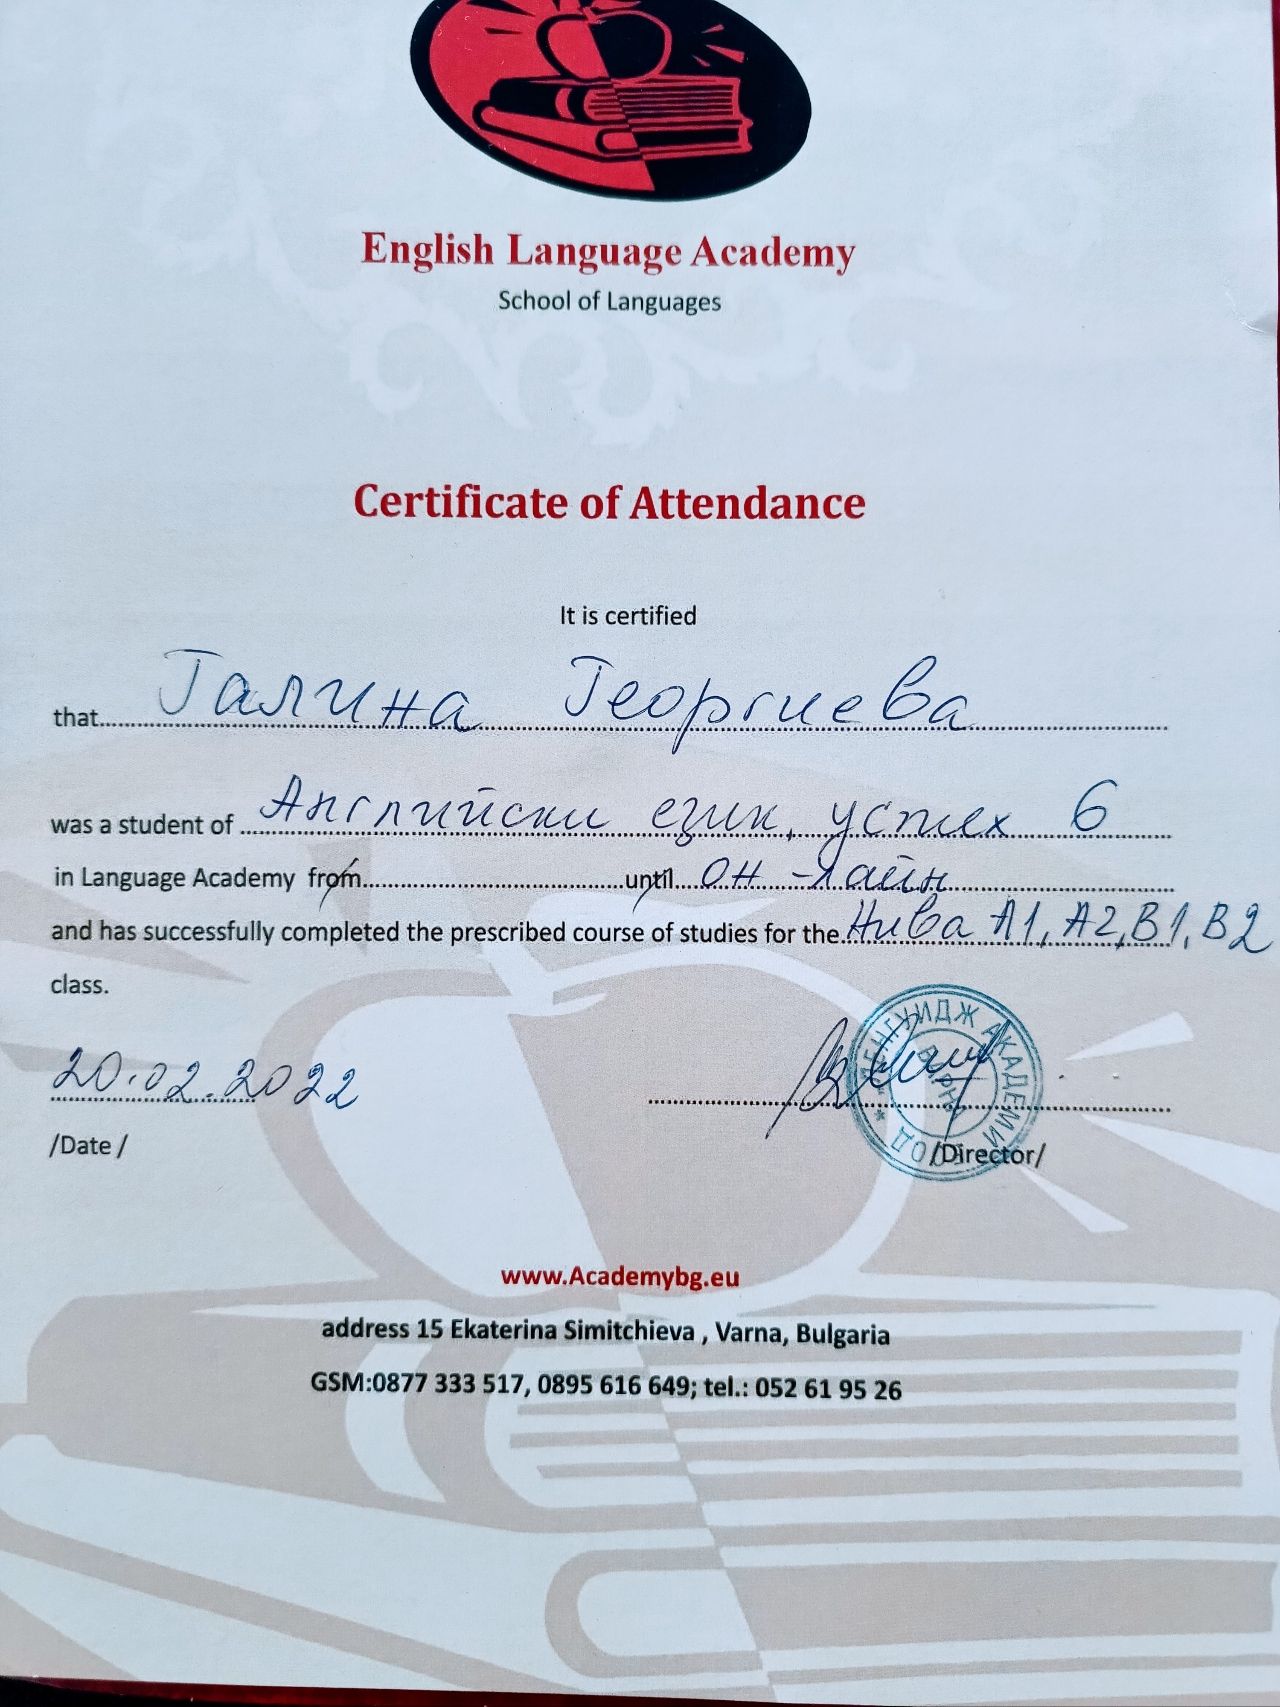 English Language Academy
School of Languages
Certificate of Attendance
It is certified
that Галина Георгиева
was a student of Английски език, успех 6
in Language Academy from until Он-лайн
and has successfully completed the prescribed course of studies for the Нива А1, А2, В1, В2
class.
20.02.2022
ЛЕНГУИДЖ АКАДЕМИ ООД
ВАРНА
/Date / /Director/
www.Academybg.eu
address 15 Ekaterina Simitchieva , Varna, Bulgaria
GSM:0877 333 517, 0895 616 649; tel.: 052 61 95 26